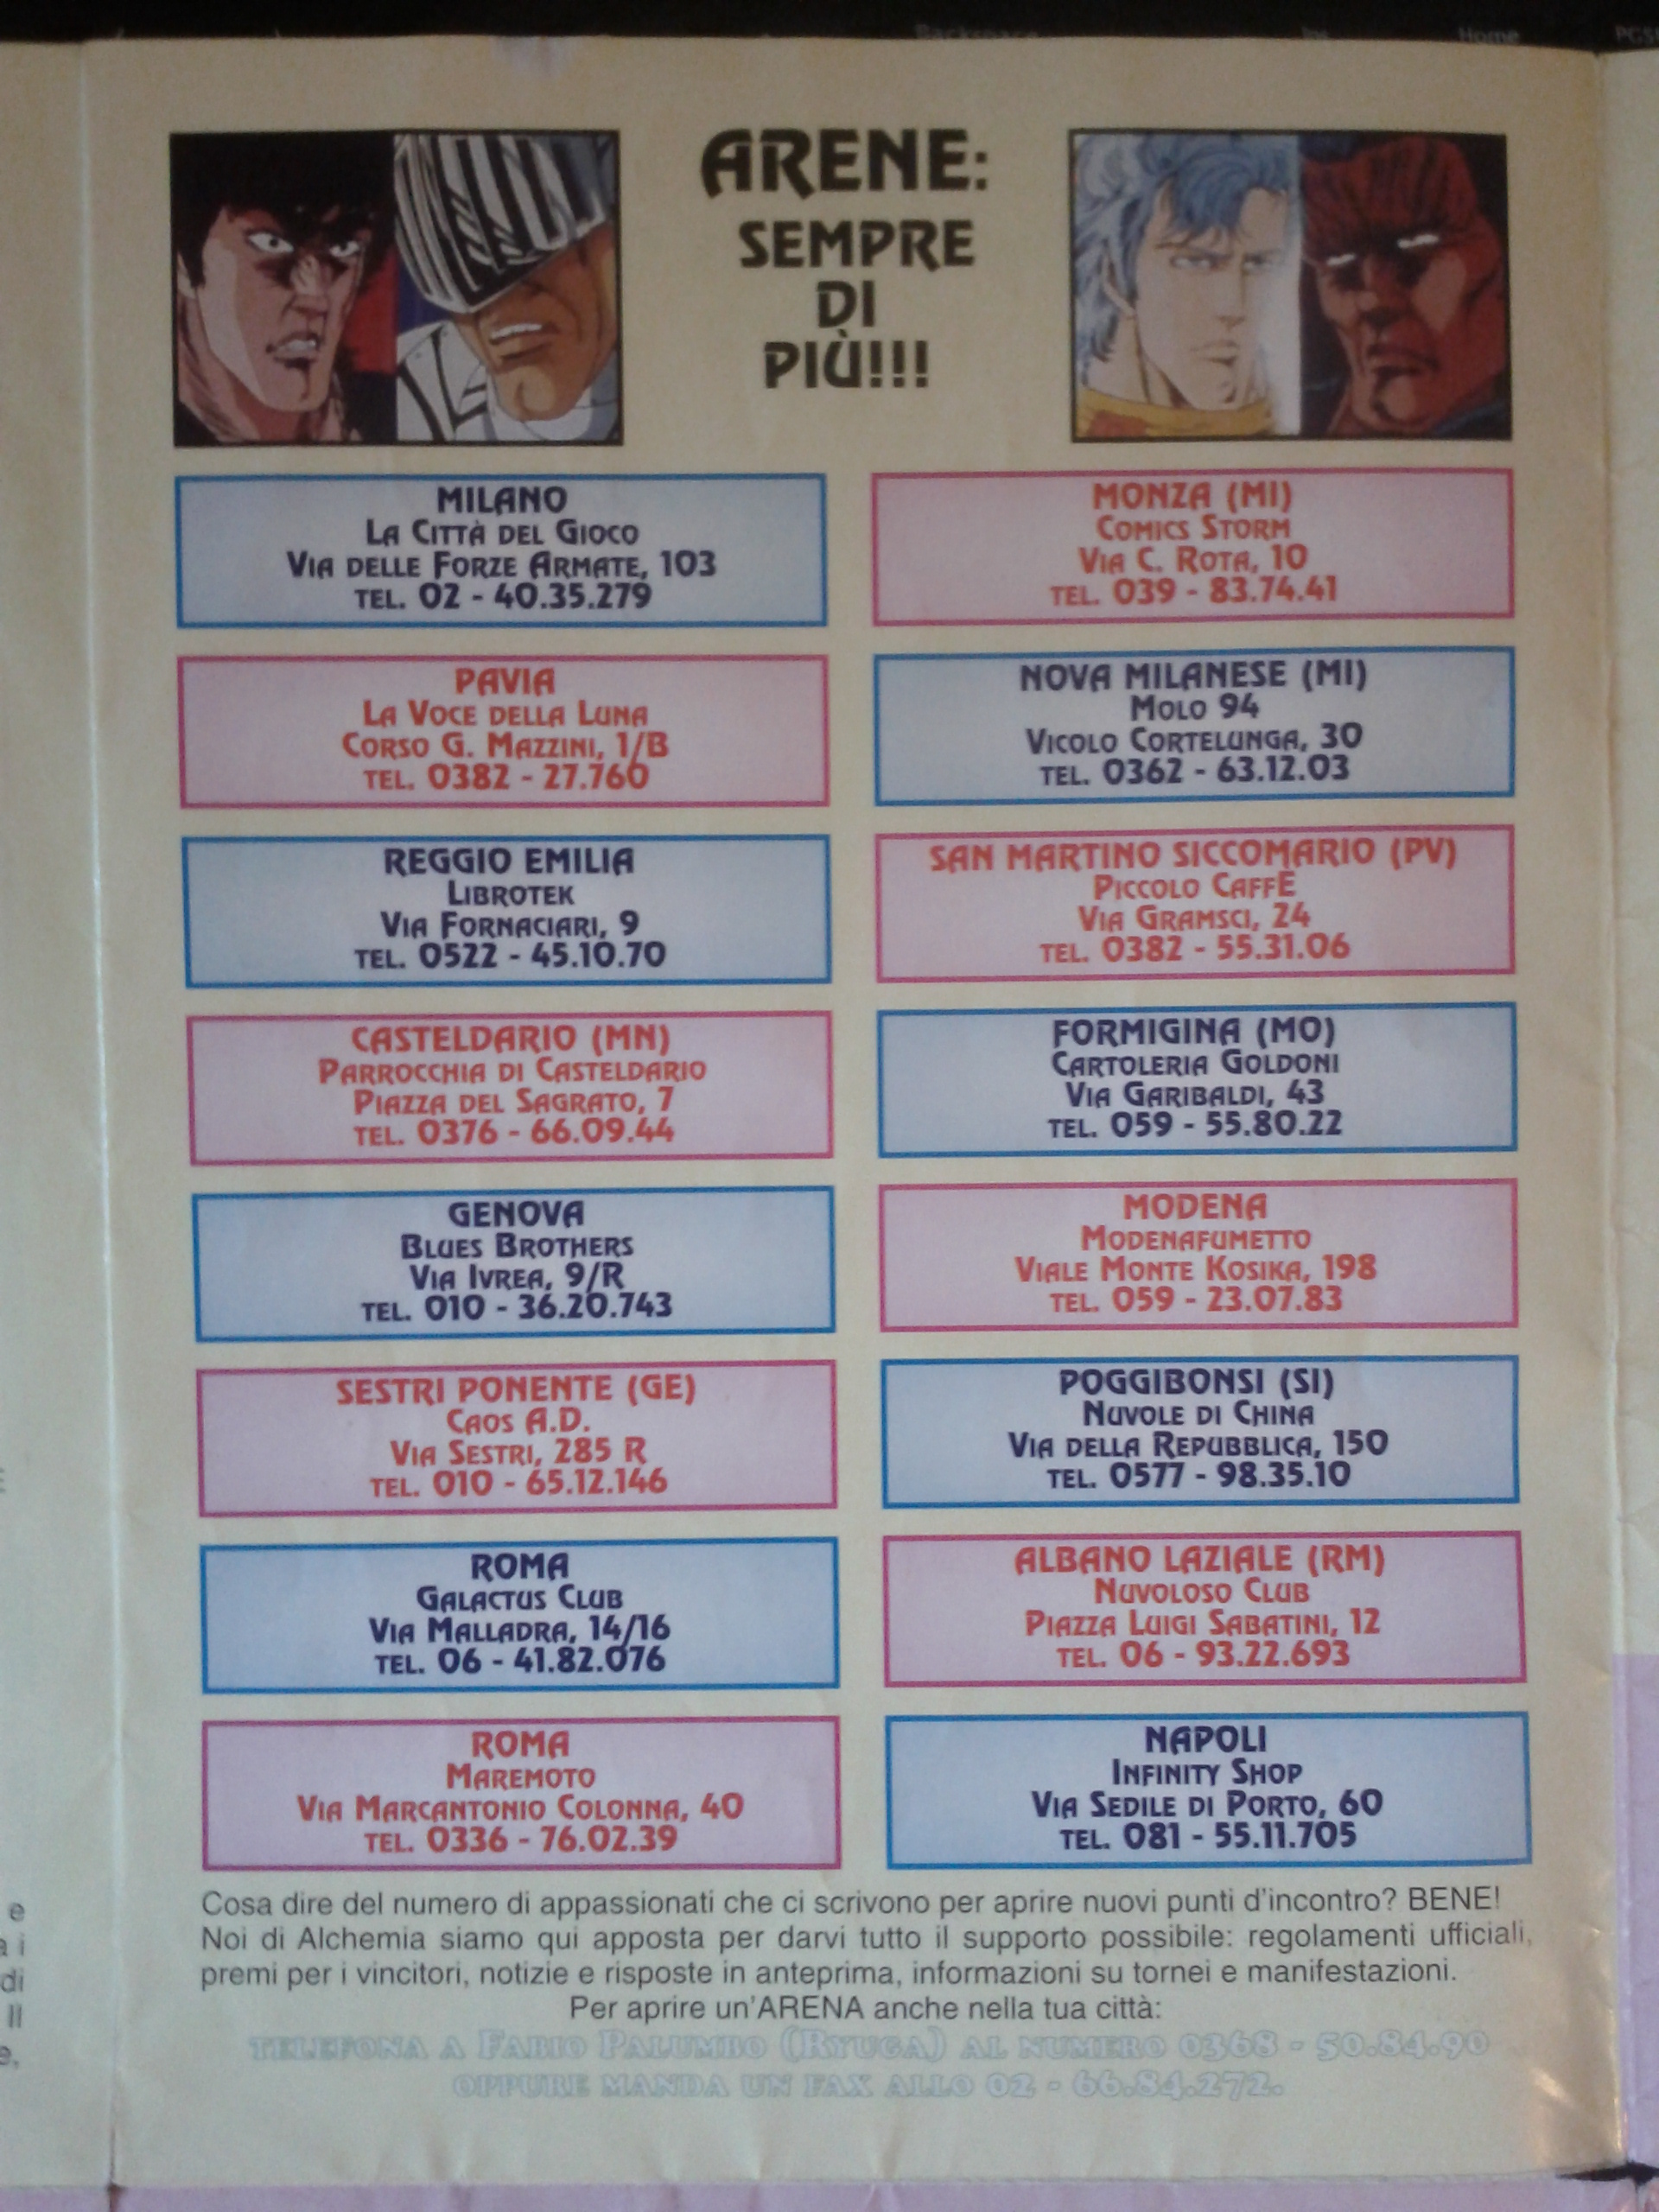 Backspace
Home
ARENE:
SEMPRE
DI
PIÙ!!!
MILANO
LA CITTÀ DEL GIOCO
VIA DELLE FORZE ARMATE, 103
TEL. 02 - 40.35.279
MONZA (MI)
COMICS STORM
VIA C. ROTA, 10
TEL. 039 - 83.74.41
PAVIA
LA VOCE DELLA LUNA
CORSO G. MAZZINI, 1/B
TEL. 0382 - 27.760
NOVA MILANESE (MI)
MOLO 94
VICOLO CORTELUNGA, 30
TEL. 0362 - 63.12.03
REGGIO EMILIA
LIBROTEK
VIA FORNACIARI, 9
TEL. 0522 - 45.10.70
SAN MARTINO SICCOMARIO (PV)
PICCOLO CAFFE
VIA GRAMSCI, 24
TEL. 0382 - 55.31.06
CASTELDARIO (MN)
PARROCCHIA DI CASTELDARIO
PIAZZA DEL SAGRATO, 7
TEL. 0376 - 66.09.44
FORMIGINA (MO)
CARTOLERIA GOLDONI
VIA GARIBALDI, 43
TEL. 059 - 55.80.22
GENOVA
BLUES BROTHERS
VIA IVREA, 9/R
TEL. 010 - 36.20.743
MODENA
MODENAFUMETTO
VIALE MONTE KOSIKA, 198
TEL. 059 - 23.07.83
SESTRI PONENTE (GE)
CAOS A.D.
VIA SESTRI, 285 R
TEL. 010 - 65.12.146
POGGIBONSI (SI)
NUVOLE DI CHINA
VIA DELLA REPUBBLICA, 150
TEL. 0577 - 98.35.10
ROMA
GALACTUS CLUB
VIA MALLADRA, 14/16
TEL. 06 - 41.82.076
ALBANO LAZIALE (RM)
NUVOLOSO CLUB
PIAZZA LUIGI SABATINI, 12
TEL. 06 - 93.22.693
ROMA
MAREMOTO
VIA MARCANTONIO COLONNA, 40
TEL. 0336 - 76.02.39
NAPOLI
INFINITY SHOP
VIA SEDILE DI PORTO, 60
TEL. 081 - 55.11.705
Cosa dire del numero di appassionati che ci scrivono per aprire nuovi punti d'incontro? BENE!
Noi di Alchemia siamo qui apposta per darvi tutto il supporto possibile: regolamenti ufficiali,
premi per i vincitori, notizie e risposte in anteprima, informazioni su tornei e manifestazioni.
Per aprire un'ARENA anche nella tua città:
TELEFONA A FABIO PALUMBO (RYUGA) AL NUMERO 0368 - 50.84.90
OPPURE MANDA UN FAX ALLO 02 - 66.84.272.